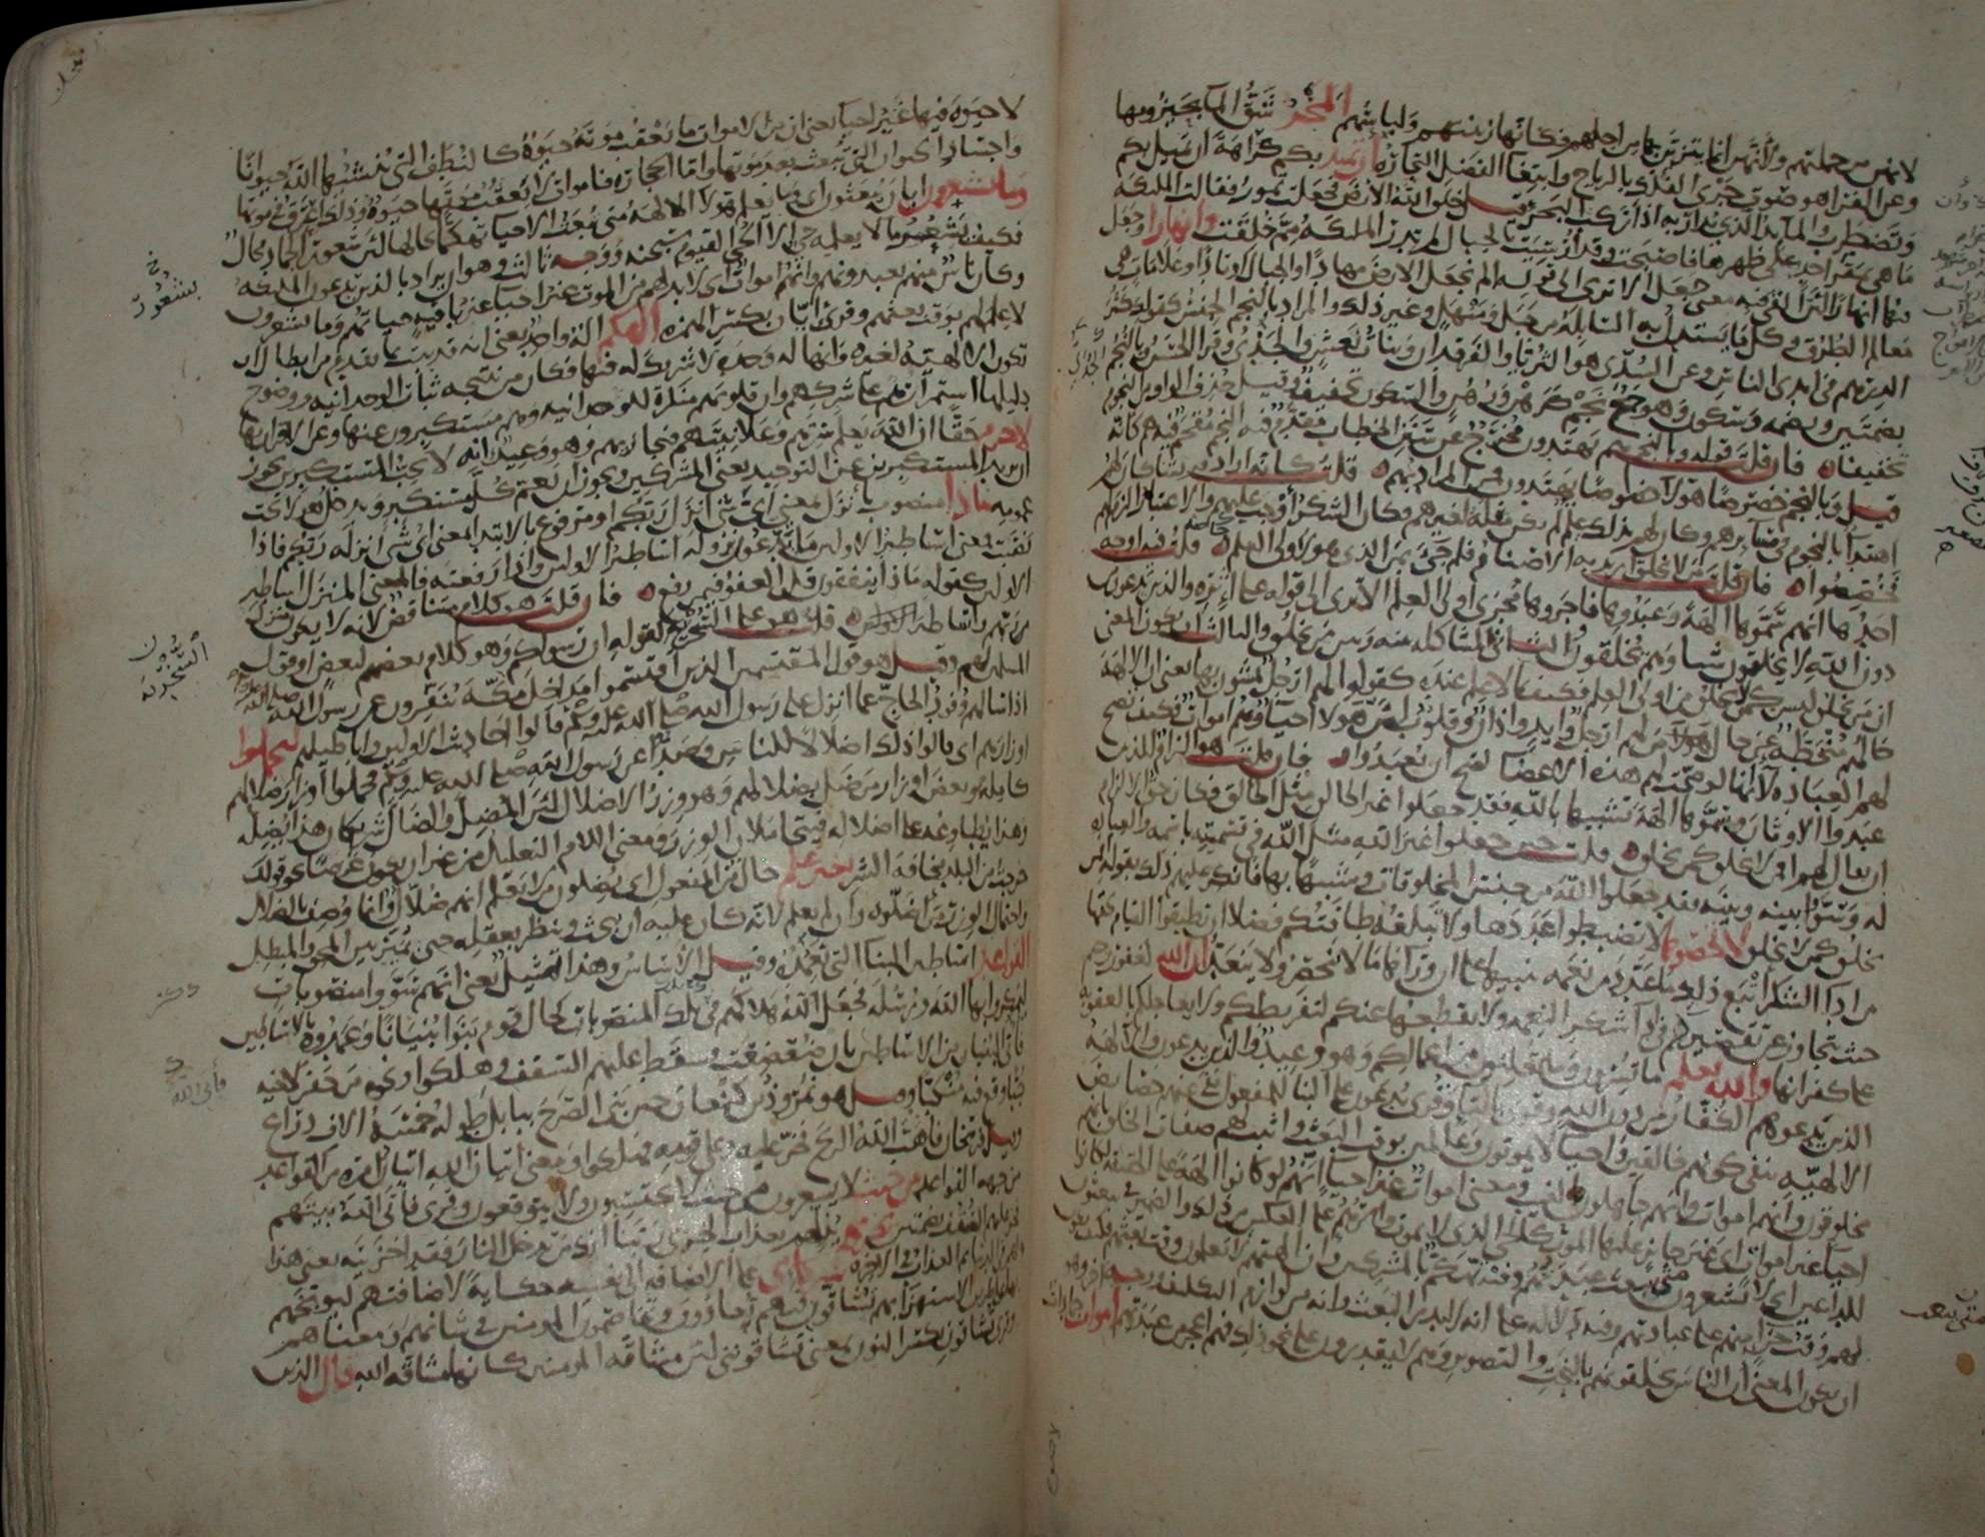 لانهن من جملتهم ولأنهن انما يتزين بها من اجلهم فكانها زينتهم ولباسهم المخر شق الماء بحيزومها
وعن الفراء هو صوت جري الفلك بالرياح وابتغاء الفضل التجارة ان تميد بكم كراهة ان تميل بكم
وتضطرب والمائد الذي يدار به اذا ركب البحر قيل خلق الله الارض فجعلت تمور فقالت الملئكة
ما هي بمقر احد على ظهرها فاصبحت وقد ارسيت بالجبال لم تدر الملئكة مم خلقت وانهارا وجعل
فيها انهارا لان القى فيه معنى جعل الا ترى الى قوله الم نجعل الارض مهادا والجبال اوتادا وعلامات هي
معالم الطرق وكل ما يستدل به السابلة من جبل وسهل وغير ذلك والمراد بالنجم الجنس كقولك كثر
الدرهم في ايدي الناس وعن السدي هو الثريا والفرقدان وبنات نعش والجدي وقرأ الحسن وبالنجم
بضمتين وبضمة وسكون وهو جمع نجم كرهن ورهن والسكون تخفيف وقيل حذف الواو من النجوم
تخفيفا فان قلت قوله وبالنجم هم يهتدون مخرج عن سنن الخطاب مقدم فيه النجم مقحم فيه هم كانه
قيل وبالنجم خصوصا هؤلاء خصوصا يهتدون فمن المراد بهم قلت كانه اراد قريشا كان لهم
اهتداء بالنجوم في مسايرهم وكان لهم بذلك علم لم يكن مثله لغيرهم فكان الشكر اوجب عليهم والاعتبار الزم لهم
فخصصوا فان قلت من لا يخلق اريد به الاصنام فلم جيء بمن الذي هو لاولي العلم قلت فيه اوجه
احدها انهم سموها الهة وعبدوها فاجروها مجرى اولي العلم الا ترى الى قوله على اثره والذين يدعون
دون الله لا يخلقون شيا وهم يخلقون والثاني المشاكلة بينه وبين من يخلق والثالث ان يكون المعنى
ان من يخلق ليس كمن لا يخلق من اولي العلم فكيف بما لا علم عنده كقوله الهم ارجل يمشون بها يعني ان الالهة
حالهم منحطة عن حال من لهم ارجل وايد واذان وقلوب لان هؤلاء احياء وهم اموات فكيف تصح
لهم العبادة لا انها لو صحت لهم هذه الاعضاء لصح ان يعبدوا فان قلت هو الزام للذين
عبدوا الاوثان وسموها الهة تشبيها بالله فقد جعلوا غير الخالق مثل الخالق فكان حق الالزام
ان يقال لهم افمن لا يخلق كمن يخلق قلت حين جعلوا غير الله مثل الله في تسميته باسمه والعبادة
له وسووا بينه وبينه فقد جعلوا الله من جنس المخلوقات وشبيها بها فانكر عليهم ذلك بقوله افمن
يخلق كمن لا يخلق لا تحصوها لا تضبطوا عددها ولا تبلغه طاقتكم فضلا ان تطيقوا القيام بحقها
من اداء الشكر اتبع ذلك ما عدد من نعمه تنبيها على ان وراءها ما لا ينحصر ولا ينعد ان الله لغفور رحيم
حيث تجاوز عن تقصيركم في اداء شكر النعمة ولا يقطعها عنكم لتفريطكم ولا يعاجلكم بالعقوبة
على كفرانها والله يعلم ما تسرون وما تعلنون من اعمالكم وهو وعيد والذين يدعون والالهة
الذين يدعوهم الكفار من دون الله وقرئ بالتاء وقرئ يدعون على البناء للمفعول نفى عنهم خصائص
الالهية بنفي كونهم خالقين واحياء لا يموتون وعالمين بوقت البعث واثبت لهم صفات الخلق بانهم
مخلوقون وانهم اموات وانهم جاهلون بالغيب ومعنى اموات غير احياء انهم لو كانوا الهة على الحقيقة لكانوا
احياء غير اموات اي غير جائز عليها الموت كالحي الذي لا يموت وامرهم على العكس من ذلك والضمير في يبعثون
للداعين اي لا يشعرون متى تبعث عبدتهم وفيه تهكم بالمشركين وان الهتهم لا يعلمون وقت بعثهم فكيف يكون
لهم وقت جزاء منهم على عبادتهم وفيه دلالة على انه لا بد من البعث وانه من لوازم التكليف ووجه اخر وهو
ان يكون المعنى ان الناس يخلقونهم بالنحت والتصوير وهم لا يقدرون على نحو ذلك فهم اعجز من عبدتهم اموات جمادات
متى تبعث
لا حيوة فيها غير احياء يعني ان من الاموات ما يعقب موته حيوة كالنطف التي ينشئها الله حيوانا
واجساد الحيوان التي تبعث بعد موتها واما الحجارة فاموات لا يعقب موتها حيوة وذلك اعرق في موتها
وما يشعرون ايان يبعثون اي وما يعلم هؤلاء الالهة متى تبعث الاحياء تهكما بحالها لان شعور الجماد محال
فكيف بشعور ما لا يعلمه حي الا الحي القيوم سبحنه ووجه ثالث وهو ان يراد بالذين يدعون الملئكة
وكان ناس منهم يعبدونهم وانهم اموات اي لا بد لهم من الموت غير احياء غير باقية حياتهم وما يشعرون
لا علم لهم بوقت بعثهم وقرئ ايان بكسر الهمزة الهكم اله واحد يعني انه قد ثبت بما تقدم من ابطال ان
تكون الالهية لغيره وانها له وحده لا شريك له فيها فكان من نتيجة ثبات الوحدانية ووضوح
دليلها استمرارهم على شركهم وان قلوبهم منكرة للوحدانية وهم مستكبرون عنها وعن الاقرار بها
لا جرم حقا ان الله يعلم سرهم وعلانيتهم فيجازيهم وهو وعيد انه لا يحب المستكبرين يجوز
ان يريد المستكبرين عن التوحيد يعني المشركين ويجوز ان يعم كل مستكبر ويدخل هؤلاء تحت
عمومه ماذا منصوب بانزل بمعنى اي شيء انزل ربكم او مرفوع بالابتداء بمعنى اي شيء انزله ربكم فاذا
نصبت فمعنى اساطير الاولين ما يدعون نزوله اساطير الاولين واذا رفعته فالمعنى المنزل اساطير
الاولين كقوله ماذا ينفقون قل العفو فيمن رفع فان قلت هو كلام متناقض لانه لا يكون منزل
ربهم واساطير قلت هو على السخرية كقوله ان رسولكم وهو كلام بعضهم لبعض او قول
المسلمين لهم وقيل هو قول المقتسمين الذين اقتسموا مداخل مكة ينفرون عن رسول الله صلى الله عليه وسلم
اذا سالهم وفود الحاج عما انزل على رسول الله صلى الله عليه وسلم قالوا احاديث الاولين واباطيلهم ليحملوا
اوزارهم اي قالوا ذلك اضلالا للناس وصدا عن رسول الله صلى الله عليه وسلم فحملوا اوزار ضلالهم
كاملة وبعض اوزار من ضل بضلالهم وهو وزر الاضلال لان المضل والضال شريكان هذا يضله
وهذا يطاوعه على اضلاله فيتحاملان الوزر ومعنى اللام التعليل من غير ان يكون غرضا كقولك
خرجت من البلد مخافة الشر بغير علم حال من المفعول اي يضلون من لا يعلم انهم ضلال وانما وصف بالضلال
واحتمال الوزر من اضلوه وان لم يعلم لانه كان عليه ان يبحث وينظر بعقله حتى يميز بين المحق والمبطل
القواعد اساطين البناء التي تعمده وقيل الاساس وهذا تمثيل يعني انهم سووا منصوبات
ليمكروا بها الله ورسله فجعل الله هلاكهم في تلك المنصوبات كحال قوم بنوا بنيانا وعمدوه بالاساطين
فاتي البنيان من الاساطين بان ضعضعت وسقط عليهم السقف وهلكوا ونحوه من حفر لاخيه
جبا وقع فيه منكبا وقيل هو نمروذ بن كنعان حين بنى الصرح ببابل طوله خمسة الاف ذراع
وقيل فرسخان فاهب الله الريح فخر عليه وعلى قومه فهلكوا ومعنى اتيان الله اتيان امره من القواعد
من جهة القواعد من حيث لا يشعرون من حيث لا يحتسبون ولا يتوقعون وقرئ فاتى الله بيتهم
فخر عليهم السقف بضمتين يخزيهم يذلهم بعذاب الخزي ربنا انك من تدخل النار فقد اخزيته يعني هذا
لهم في الدنيا ثم العذاب في الاخرة شركائي على الاضافة الى نفسه حكاية لاضافتهم ليوبخهم
بها على طريق الاستهزاء بهم تشاقون فيهم تعادون وتخاصمون المومنين في شانهم ومعناهم
وقرئ تشاقون بكسر النون بمعنى تشاقونني لان مشاقة المومنين كانها مشاقة الله قال الذين
بشعور
السخرية
فاتى الله